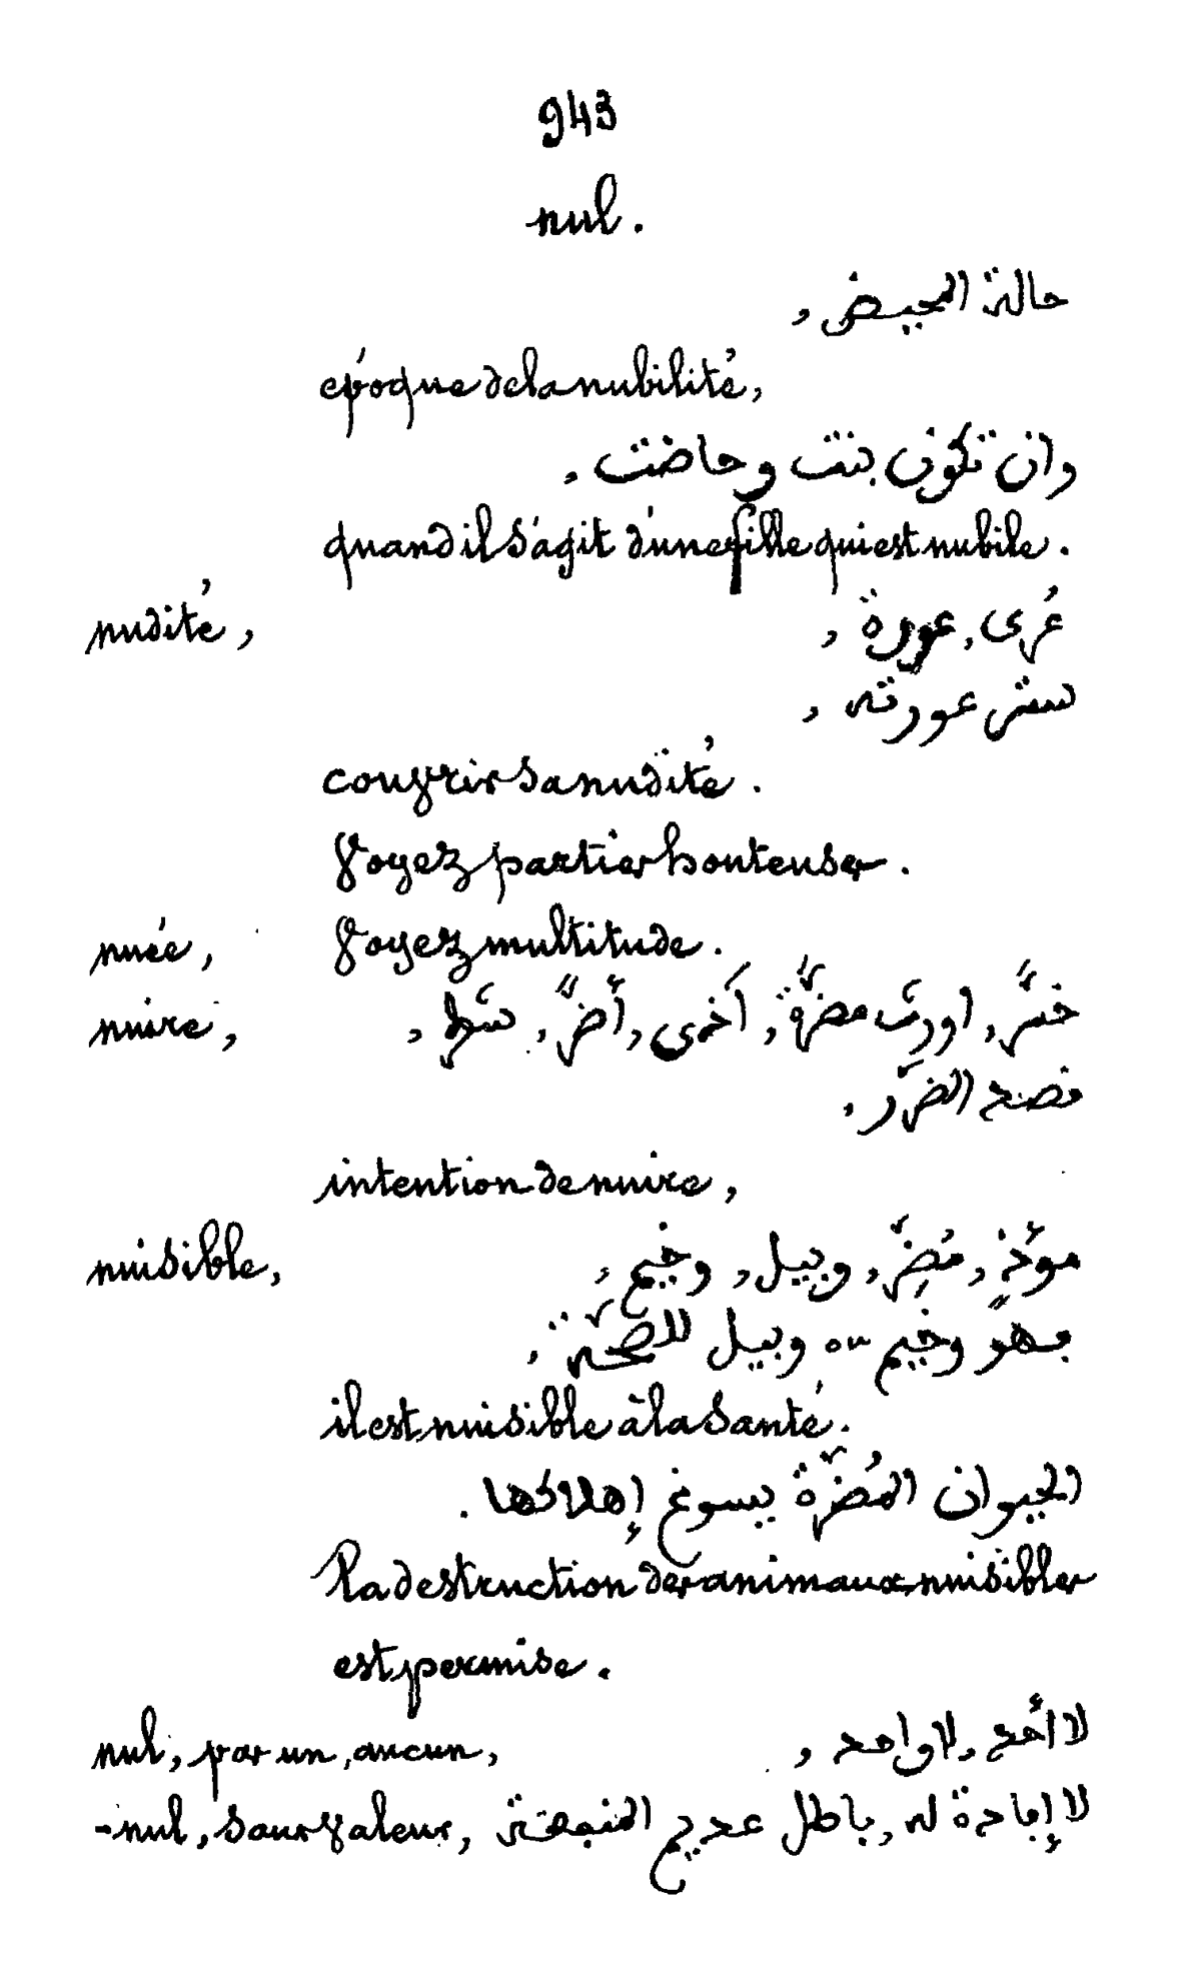 943
nul.
حالة المحيض,
époque de la nubilité,
وان تكون بنت وحاضت,
quand il s'agit d'une fille qui est nubile.
nudité, عُرى, عورة,
ستر عورته,
couvrir sa nudité.
Voyez parties honteuses.
nuée, Voyez multitude.
nuire, أضرّ,
الضرر,
intention de nuire,
nuisible, موّذٍ, مُضِرّ, وبيل, وخيم,
وخيم ou وبيل للصحّة,
il est nuisible à la santé.
الحيوان المُضرّة يسوغ إهلاكها.
La destruction des animaux nuisibles
est permise.
nul, pas un, aucun, لا أحد, لا واحد,
-nul, sans valeur, لا إفادة له, باطل عديم المنفعة